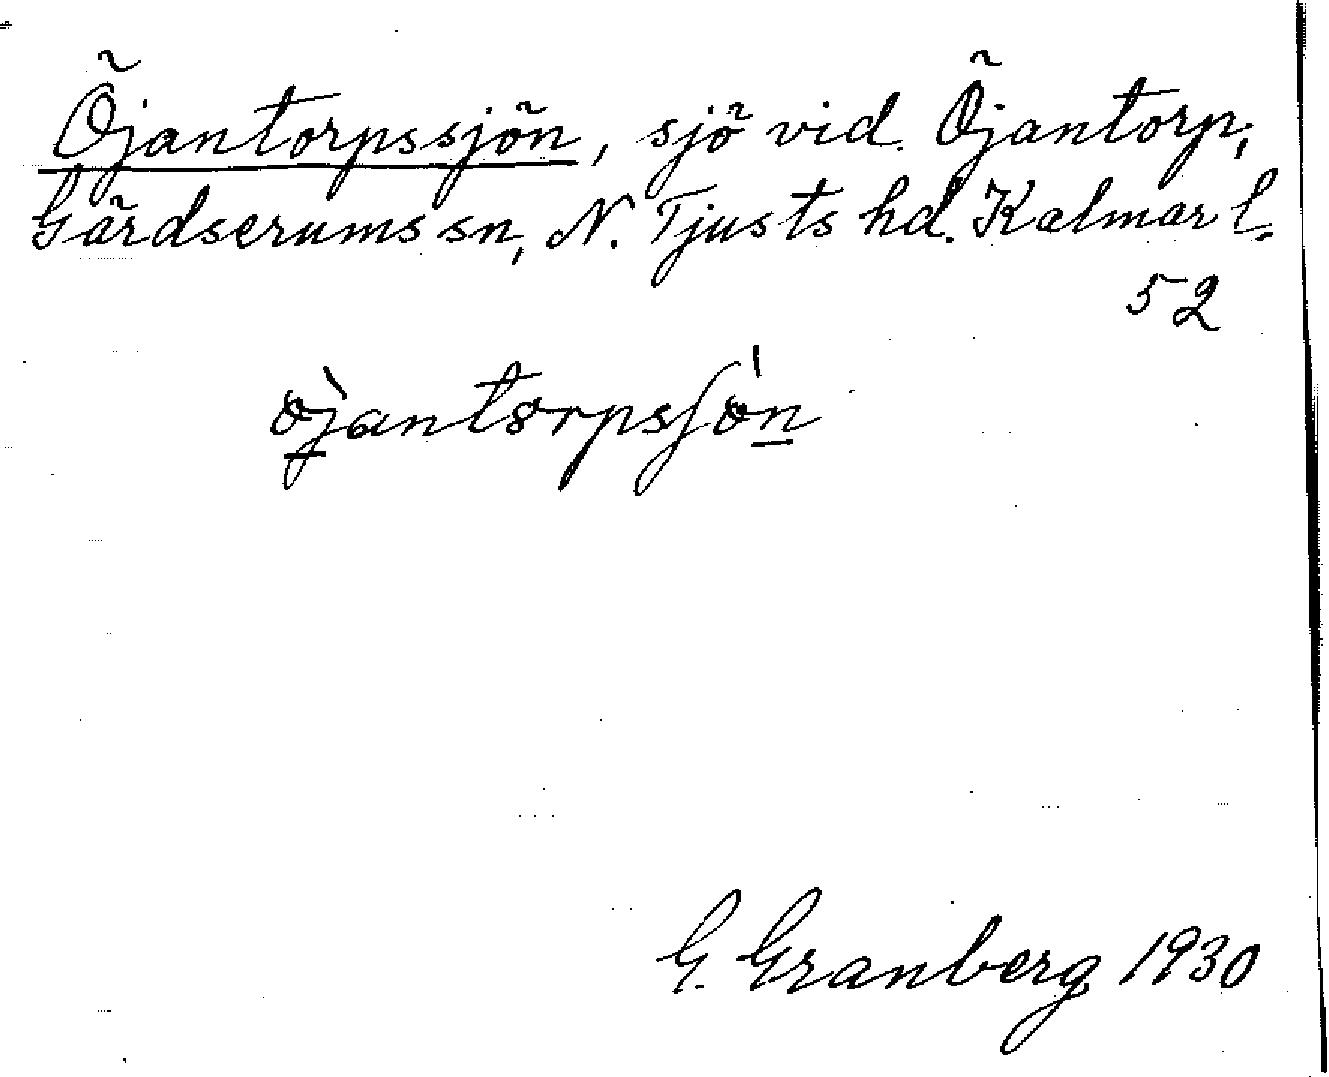 Öjantorpssjön, sjö vid Öjantorp,
Gärdserums sn, N. Tjusts hd. Kalmar l.
52
G. Granberg 1930